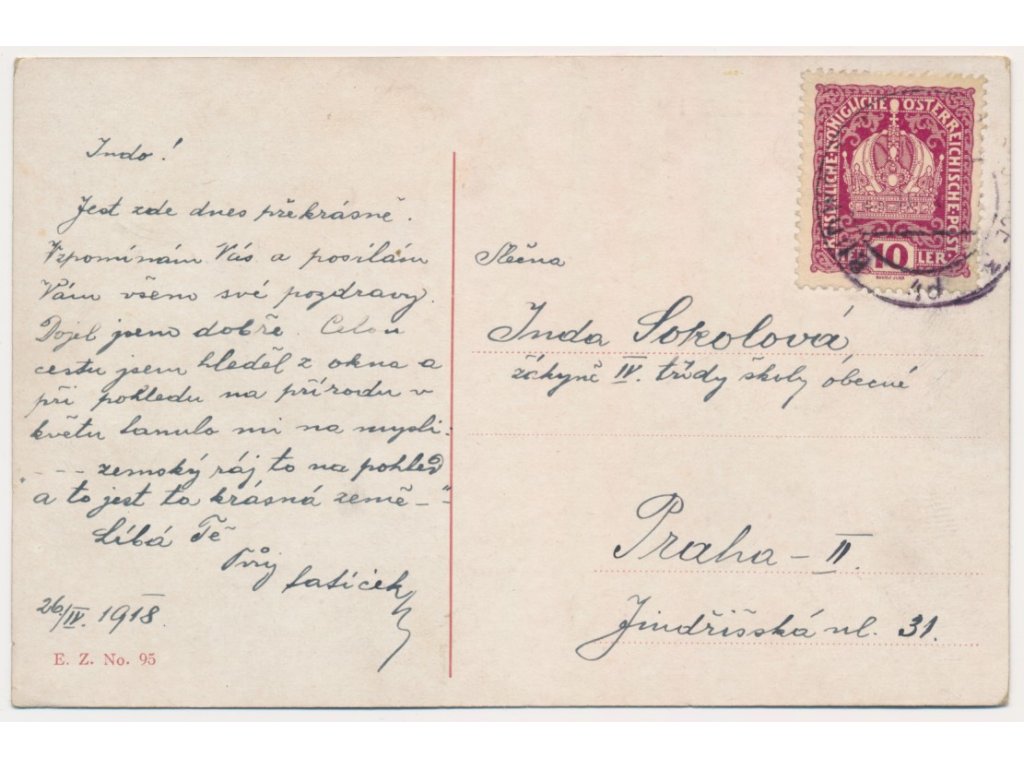 Indo!
Jest zde dnes překrásně.
Vzpomínám Vás a posílám
Vám všem své pozdravy.
Dojel jsem dobře. Celou
cestu jsem hleděl z okna a
při pohledu na přírodu v
květu tanulo mi na mysli:
--- zemský ráj to na pohled
a to jest ta krásná země -"
Líbá Tě
Tvůj tatíček
26/IV. 1918.
E. Z. No. 95
KAISERLICHE KÖNIGLICHE ÖSTERREICHISCHE POST
10
LER
Slečna
Inda Sokolová
žákyně IV. třídy školy obecné
Praha - II.
Jindřišská ul. 31.